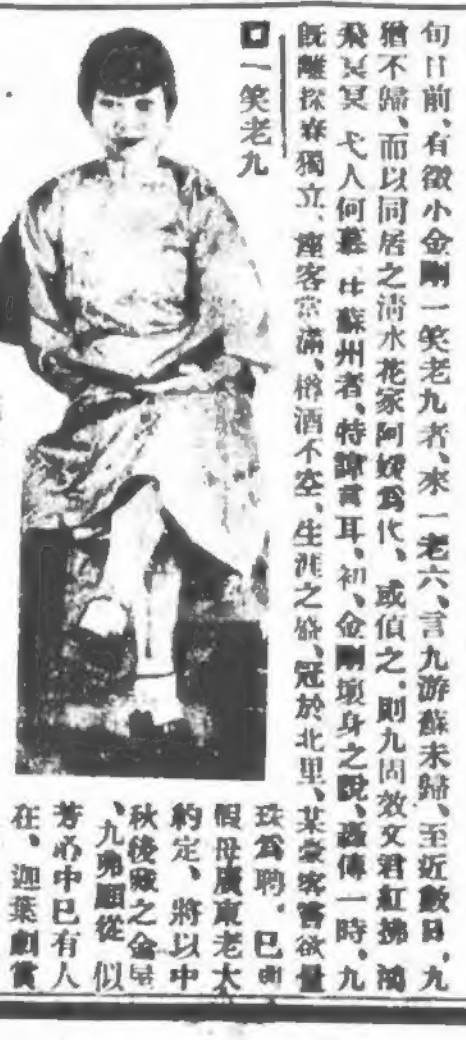 旬日前、有徵小金剛一笑老九者、來一老六、言九游蘇未歸、至近數日、九
猶不歸、而以同居之清水花家阿媛爲代、或偵之、則九固效文君紅拂、鴻
飛冥冥、弋人何慕、比蘇州者、特諱言耳、初、金剛壞身之說、轟傳一時、九
旣離探春獨立、座客常滿、樽酒不空、生涯之盛、冠於北里、某豪客嘗欲量
珠爲聘、已
假母廣東老大
約定、將以中
秋後藏之金屋
、九弗願從、似
芳心中已有人
在、迦葉劇賞
一笑老九